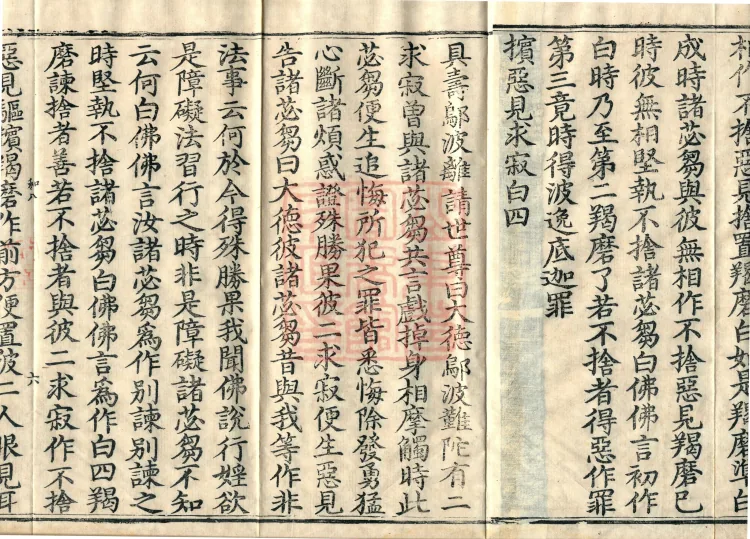 相作不捨惡見捨置羯磨白如是羯磨准白
成時諸苾芻與彼無相作不捨惡見羯磨已
時彼無相堅執不捨諸苾芻白佛佛言初作
白時乃至第二羯磨了若不捨者得惡作罪
第三竟時得波逸底迦罪
擯惡見求寂白四
具壽鄔波離請世尊曰大德鄔波難陀有二
求寂曾與諸苾芻共言戲掉身相摩觸時此
苾芻便生追悔所犯之罪皆悉悔除發勇猛
心斷諸煩惑證殊勝果彼二求寂便生惡見
告諸苾芻曰大德彼諸苾芻昔與我等作非
法事云何於今得殊勝果我聞佛說行婬欲
是障礙法習行之時非是障礙諸苾芻不知
云何白佛佛言汝諸苾芻為作別諫別諫之
時堅執不捨諸苾芻白佛佛言為作白四羯
磨諫捨者善若不捨者與彼二求寂作不捨
和八
六
惡見驅擯羯磨作前方便置彼二人眼見耳